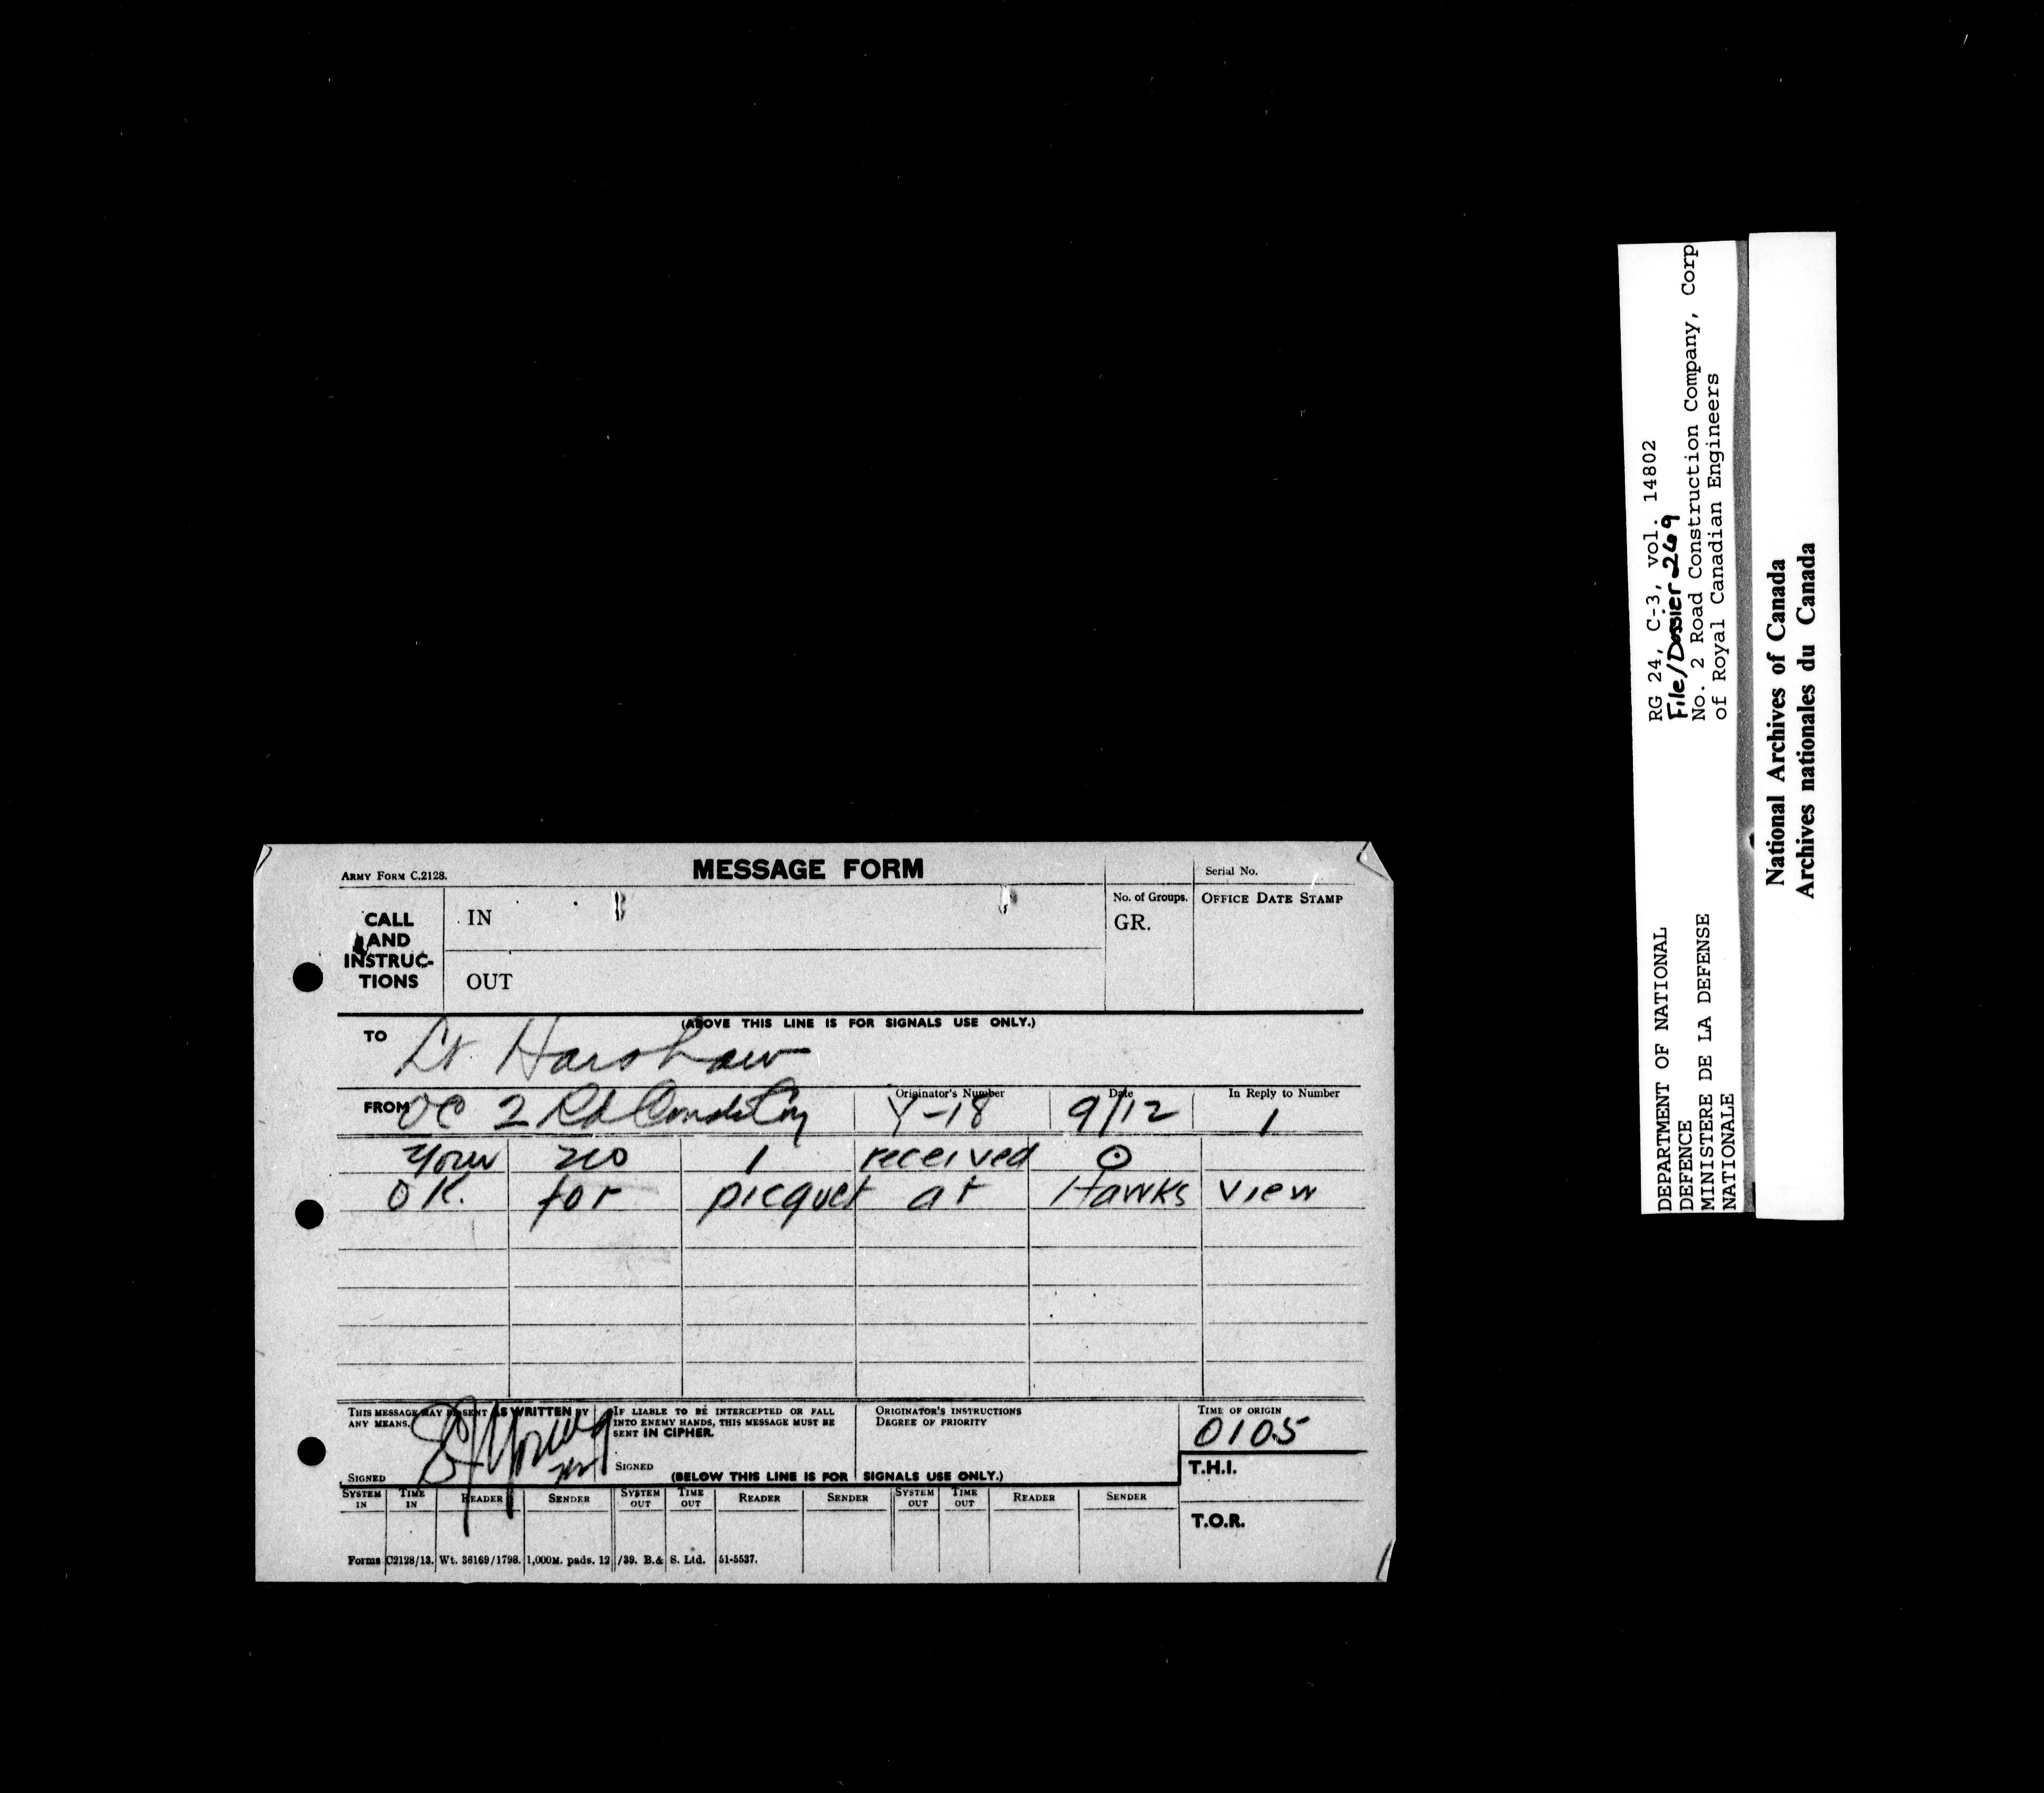 ARMY FORM C.2128.
MESSAGE FORM
Serial No.
CALL AND INSTRUC-TIONS
IN
OUT
No. of Groups.
GR.
OFFICE DATE STAMP
(ABOVE THIS LINE IS FOR SIGNALS USE ONLY.)
TO Lt Harshaw
FROM OC 2 Rd Const Coy
Originator's Number Y-18
Date 9/12
In Reply to Number 1
Your no 1 received ⊙
OK. for picquet at Hawks View
THIS MESSAGE MAY BE SENT AS WRITTEN BY ANY MEANS.
SIGNED
IF LIABLE TO BE INTERCEPTED OR FALL INTO ENEMY HANDS, THIS MESSAGE MUST BE SENT IN CIPHER.
SIGNED
ORIGINATOR'S INSTRUCTIONS
DEGREE OF PRIORITY
TIME OF ORIGIN
0105
(BELOW THIS LINE IS FOR SIGNALS USE ONLY.)
T.H.I.
T.O.R.
SYSTEM IN TIME IN READER SENDER SYSTEM OUT TIME OUT READER SENDER SYSTEM OUT TIME OUT READER SENDER
Forms C2128/13. Wt. 36169/1798. 1,000M. pads. 12/39. B.& S. Ltd. 51-5537.
RG 24, C-3, vol. 14802
File/Dossier 269
No. 2 Road Construction Company, Corp
of Royal Canadian Engineers
DEPARTMENT OF NATIONAL
DEFENCE
MINISTERE DE LA DEFENSE
NATIONALE
National Archives of Canada
Archives nationales du Canada